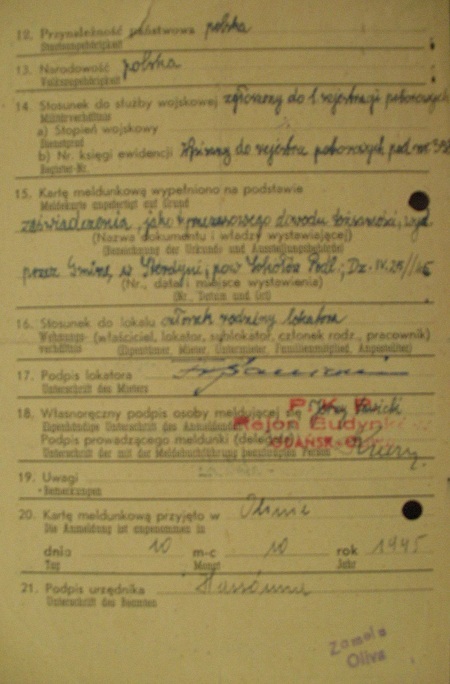 12. Przynależność państwowa polska
Staatsangehörigkeit
13. Narodowość polska
Volkszugehörigkeit
14. Stosunek do służby wojskowej zgłoszony do 1 rejestracji poborowych
Militärverhältnis
a) Stopień wojskowy
Dienstgrad
b) Nr. księgi ewidencji Wpisany do rejestru poborowych pod nr
Register-Nr.
15. Kartę meldunkową wypełniono na podstawie
Meldekarte ausgefertigt auf Grund
zaświadczenia, jako tymczasowego dowodu tożsamości, wyd.
(Nazwa dokumentu i władzy wystawiającej)
(Bezeichnung der Urkunde und Ausstellungsbehörde)
przez Gminę w Sterdyni, pow. Sokołów Podl.; Dz. IV. 25//45
(Nr., data i miejsce wystawienia)
(Nr., Datum und Ort)
16. Stosunek do lokalu członek rodziny lokatora
Wohnungs- (właściciel, lokator, sublokator, członek rodz., pracownik)
verhältnis (Eigentümer, Mieter, Untermieter, Familienmitglied, Angestellter)
17. Podpis lokatora
Unterschrift des Mieters
18. Własnoręczny podpis osoby meldującej się Jerzy
Eigenhändige Unterschrift des Anmeldenden
P. K. P.
Rejon Budynków
GDAŃSK
Podpis prowadzącego meldunki (delegata)
Unterschrift der mit der Meldebuchführung beauftragten Person
19. Uwagi
Bemerkungen
20. Kartę meldunkową przyjęto w Oliwie
Die Anmeldung ist angenommen in
dnia 10 m-c 10 rok 1945
Tag Monat Jahr
21. Podpis urzędnika
Unterschrift des Beamten
Zamela
Oliva